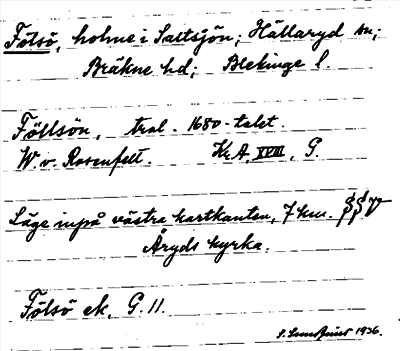 Fölsö, holme i Saltsjön; Hällaryd sn;
Bräkne hd; Blekinge l.
Föllsön, trol. 1680-talet.
W. v. Rosenfelt. Kr.A. XVIII, G.
Läge inpå västra kartkanten, 7 km.
Åryds kyrka.
Fölsö ek, G. 11.
1936.